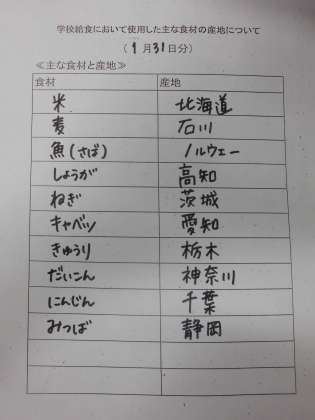 学校給食において使用した主な食材の産地について
(1月31日分)
≪主な食材と産地≫
食材 産地
米 北海道
麦 石川
魚(さば) ノルウェー
しょうが 高知
ねぎ 茨城
キャベツ 愛知
きゅうり 栃木
だいこん 神奈川
にんじん 千葉
みつば 静岡